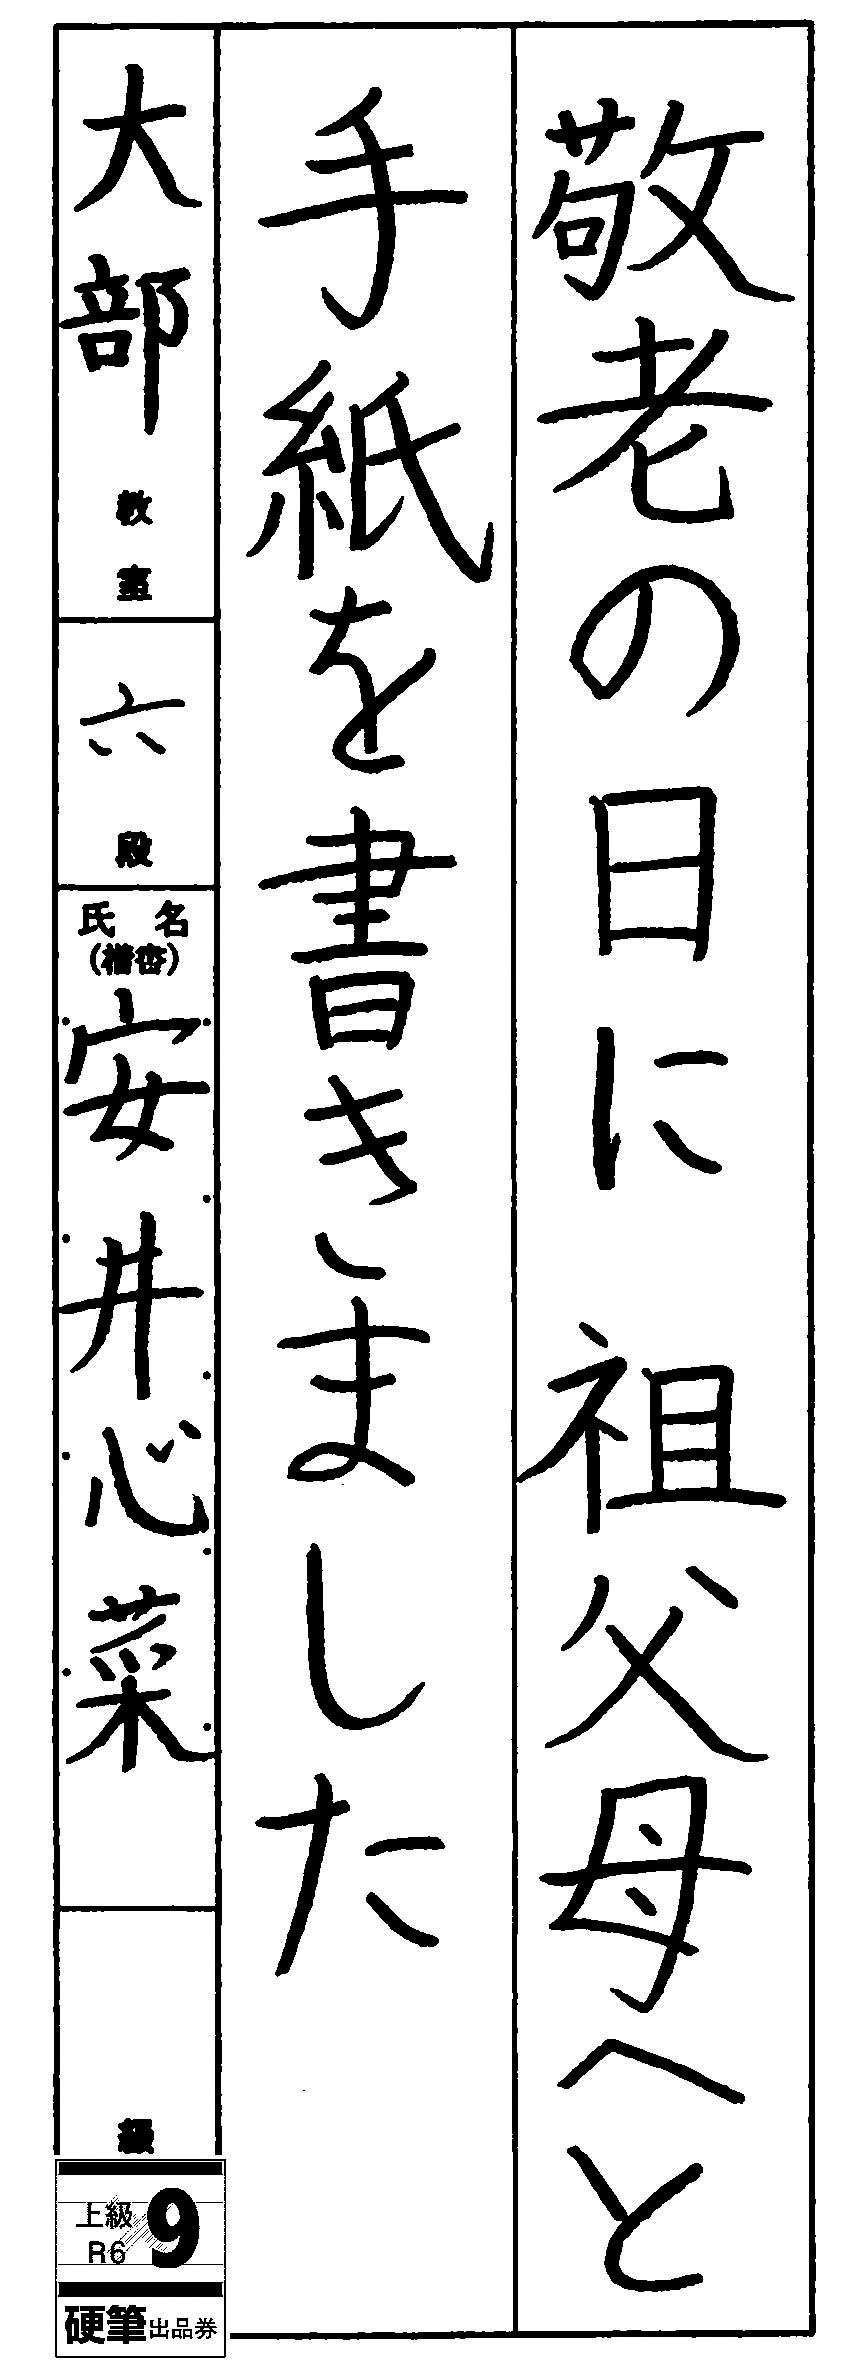 敬老の日に 祖父母へと
手紙を書きました
大部教室
六段
氏名
（楷書）
安井心菜
級
上級
R6
9
硬筆出品券